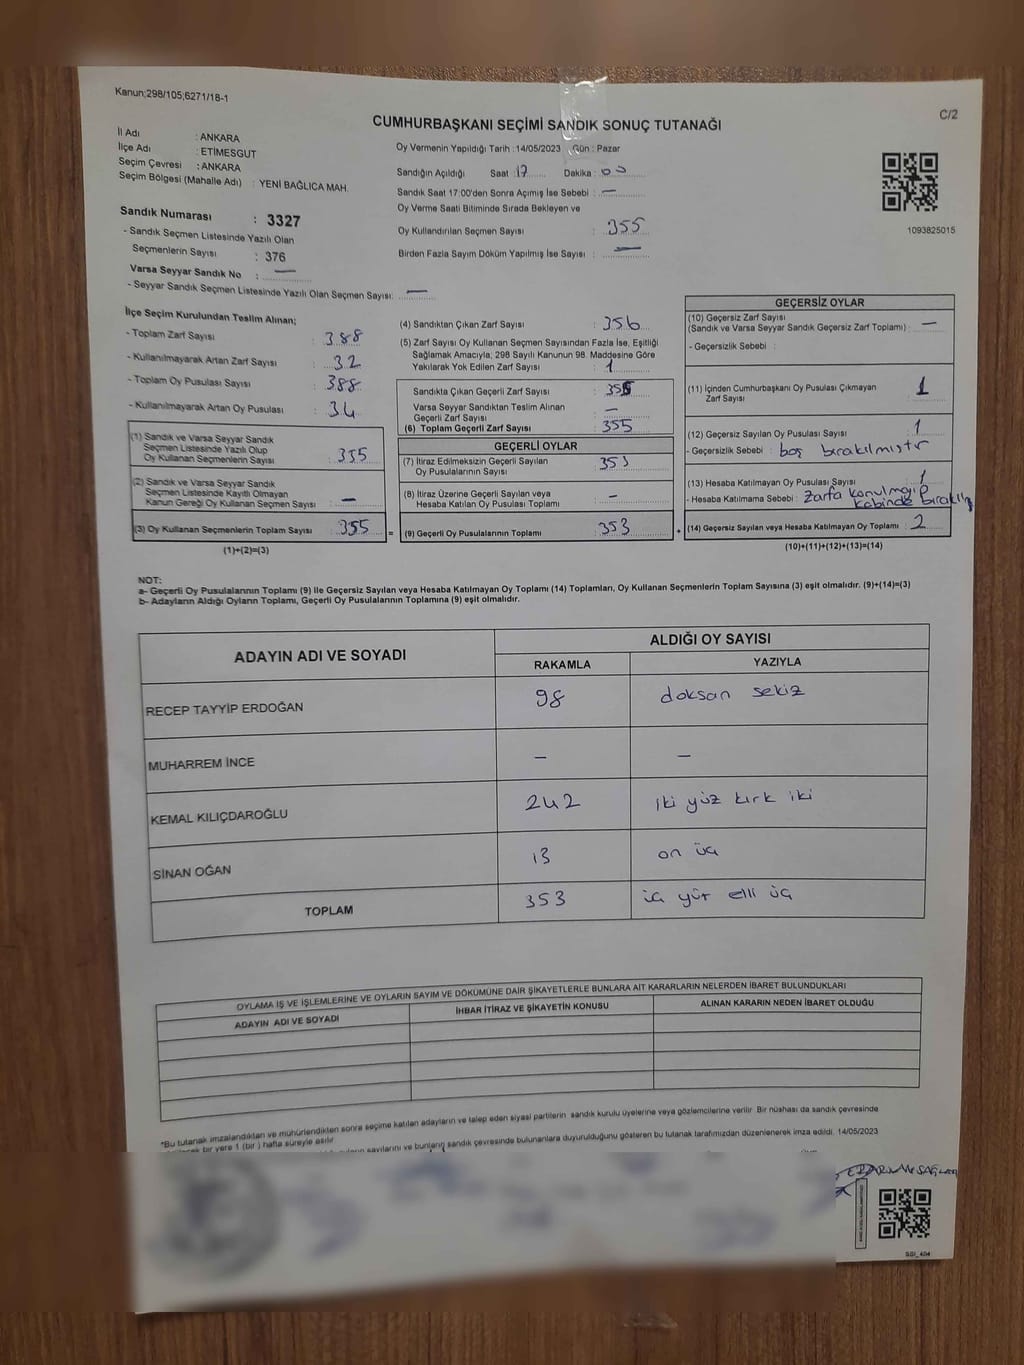 Kanun;298/105;6271/18-1
C/2
CUMHURBAŞKANI SEÇİMİ SANDIK SONUÇ TUTANAĞI
İl Adı : ANKARA
İlçe Adı : ETİMESGUT
Seçim Çevresi : ANKARA
Seçim Bölgesi (Mahalle Adı) : YENİ BAĞLICA MAH.
Sandık Numarası : 3327
- Sandık Seçmen Listesinde Yazılı Olan
Seçmenlerin Sayısı : 376
Varsa Seyyar Sandık No : —
- Seyyar Sandık Seçmen Listesinde Yazılı Olan Seçmen Sayısı: —
Oy Vermenin Yapıldığı Tarih :14/05/2023 Gün : Pazar
Sandığın Açıldığı Saat :17 Dakika :00
Sandık Saat 17:00'den Sonra Açımış İse Sebebi : —
Oy Verme Saati Bitiminde Sırada Bekleyen ve
Oy Kullandırılan Seçmen Sayısı : 355
Birden Fazla Sayım Döküm Yapılmış İse Sayısı : —
1093825015
İlçe Seçim Kurulundan Teslim Alınan;
- Toplam Zarf Sayısı : 388
- Kullanılmayarak Artan Zarf Sayısı : 32
- Toplam Oy Pusulası Sayısı : 388
- Kullanılmayarak Artan Oy Pusulası : 34
(1) Sandık ve Varsa Seyyar Sandık
Seçmen Listesinde Yazılı Olup
Oy Kullanan Seçmenlerin Sayısı : 355
(2) Sandık ve Varsa Seyyar Sandık
Seçmen Listesinde Kayıtlı Olmayan
Kanun Gereği Oy Kullanan Seçmen Sayısı : —
(3) Oy Kullanan Seçmenlerin Toplam Sayısı : 355
(1)+(2)=(3)
=
(4) Sandıktan Çıkan Zarf Sayısı : 356
(5) Zarf Sayısı Oy Kullanan Seçmen Sayısından Fazla İse, Eşitliği
Sağlamak Amacıyla, 298 Sayılı Kanunun 98. Maddesine Göre
Yakılarak Yok Edilen Zarf Sayısı : 1
Sandıkta Çıkan Geçerli Zarf Sayısı : 355
Varsa Seyyar Sandıktan Teslim Alınan
Geçerli Zarf Sayısı : —
(6) Toplam Geçerli Zarf Sayısı : 355
GEÇERLİ OYLAR
(7) İtiraz Edilmeksizin Geçerli Sayılan
Oy Pusulalarının Sayısı : 353
(8) İtiraz Üzerine Geçerli Sayılan veya
Hesaba Katılan Oy Pusulası Toplamı : —
(9) Geçerli Oy Pusulalarının Toplamı : 353
+
GEÇERSİZ OYLAR
(10) Geçersiz Zarf Sayısı
(Sandık ve Varsa Seyyar Sandık Geçersiz Zarf Toplamı) : —
- Geçersizlik Sebebi :
(11) İçinden Cumhurbaşkanı Oy Pusulası Çıkmayan
Zarf Sayısı : 1
(12) Geçersiz Sayılan Oy Pusulası Sayısı : 1
- Geçersizlik Sebebi : boş bırakılmıştır
(13) Hesaba Katılmayan Oy Pusulası Sayısı : 1
- Hesaba Katılmama Sebebi : Zarfa konulmayıp
kabinde
(14) Geçersiz Sayılan veya Hesaba Katılmayan Oy Toplamı : 2
(10)+(11)+(12)+(13)=(14)
NOT:
a- Geçerli Oy Pusulalarının Toplamı (9) ile Geçersiz Sayılan veya Hesaba Katılmayan Oy Toplamı (14) Toplamları, Oy Kullanan Seçmenlerin Toplam Sayısına (3) eşit olmalıdır. (9)+(14)=(3)
b- Adayların Aldığı Oyların Toplamı, Geçerli Oy Pusulalarının Toplamına (9) eşit olmalıdır.
ADAYIN ADI VE SOYADI
ALDIĞI OY SAYISI
RAKAMLA YAZIYLA
RECEP TAYYİP ERDOĞAN 98 doksan sekiz
MUHARREM İNCE — —
KEMAL KILIÇDAROĞLU 242 iki yüz kırk iki
SİNAN OĞAN 13 on üç
TOPLAM 353 üç yüz elli üç
OYLAMA İŞ VE İŞLEMLERİNE VE OYLARIN SAYIM VE DÖKÜMÜNE DAİR ŞİKAYETLERLE BUNLARA AİT KARARLARIN NELERDEN İBARET BULUNDUKLARI
ADAYIN ADI VE SOYADI İHBAR İTİRAZ VE ŞİKAYETİN KONUSU ALINAN KARARIN NEDEN İBARET OLDUĞU
*Bu tutanak imzalandıktan ve mühürlendikten sonra seçime katılan adayların ve talep eden siyasi partilerin sandık kurulu üyelerine veya gözlemcilerine verilir. Bir nüshası da sandık çevresinde
bir yere 1 (bir) hafta süreyle asılır.
sayılarını ve bunların sandık çevresinde bulunanlara duyurulduğunu gösteren bu tutanak tarafımızdan düzenlenerek imza edildi. 14/05/2023
SGI_404